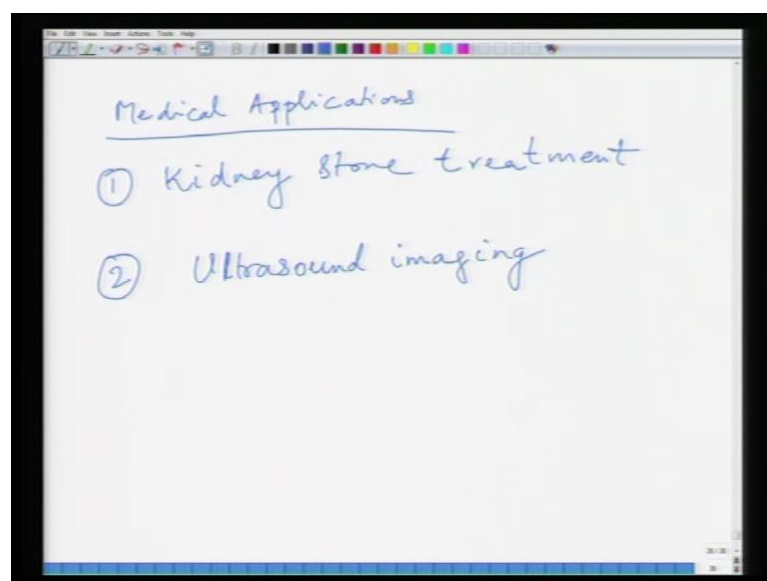 File Edit View Insert Actions Tools Help
Medical Applications
① Kidney Stone treatment
② Ultrasound imaging